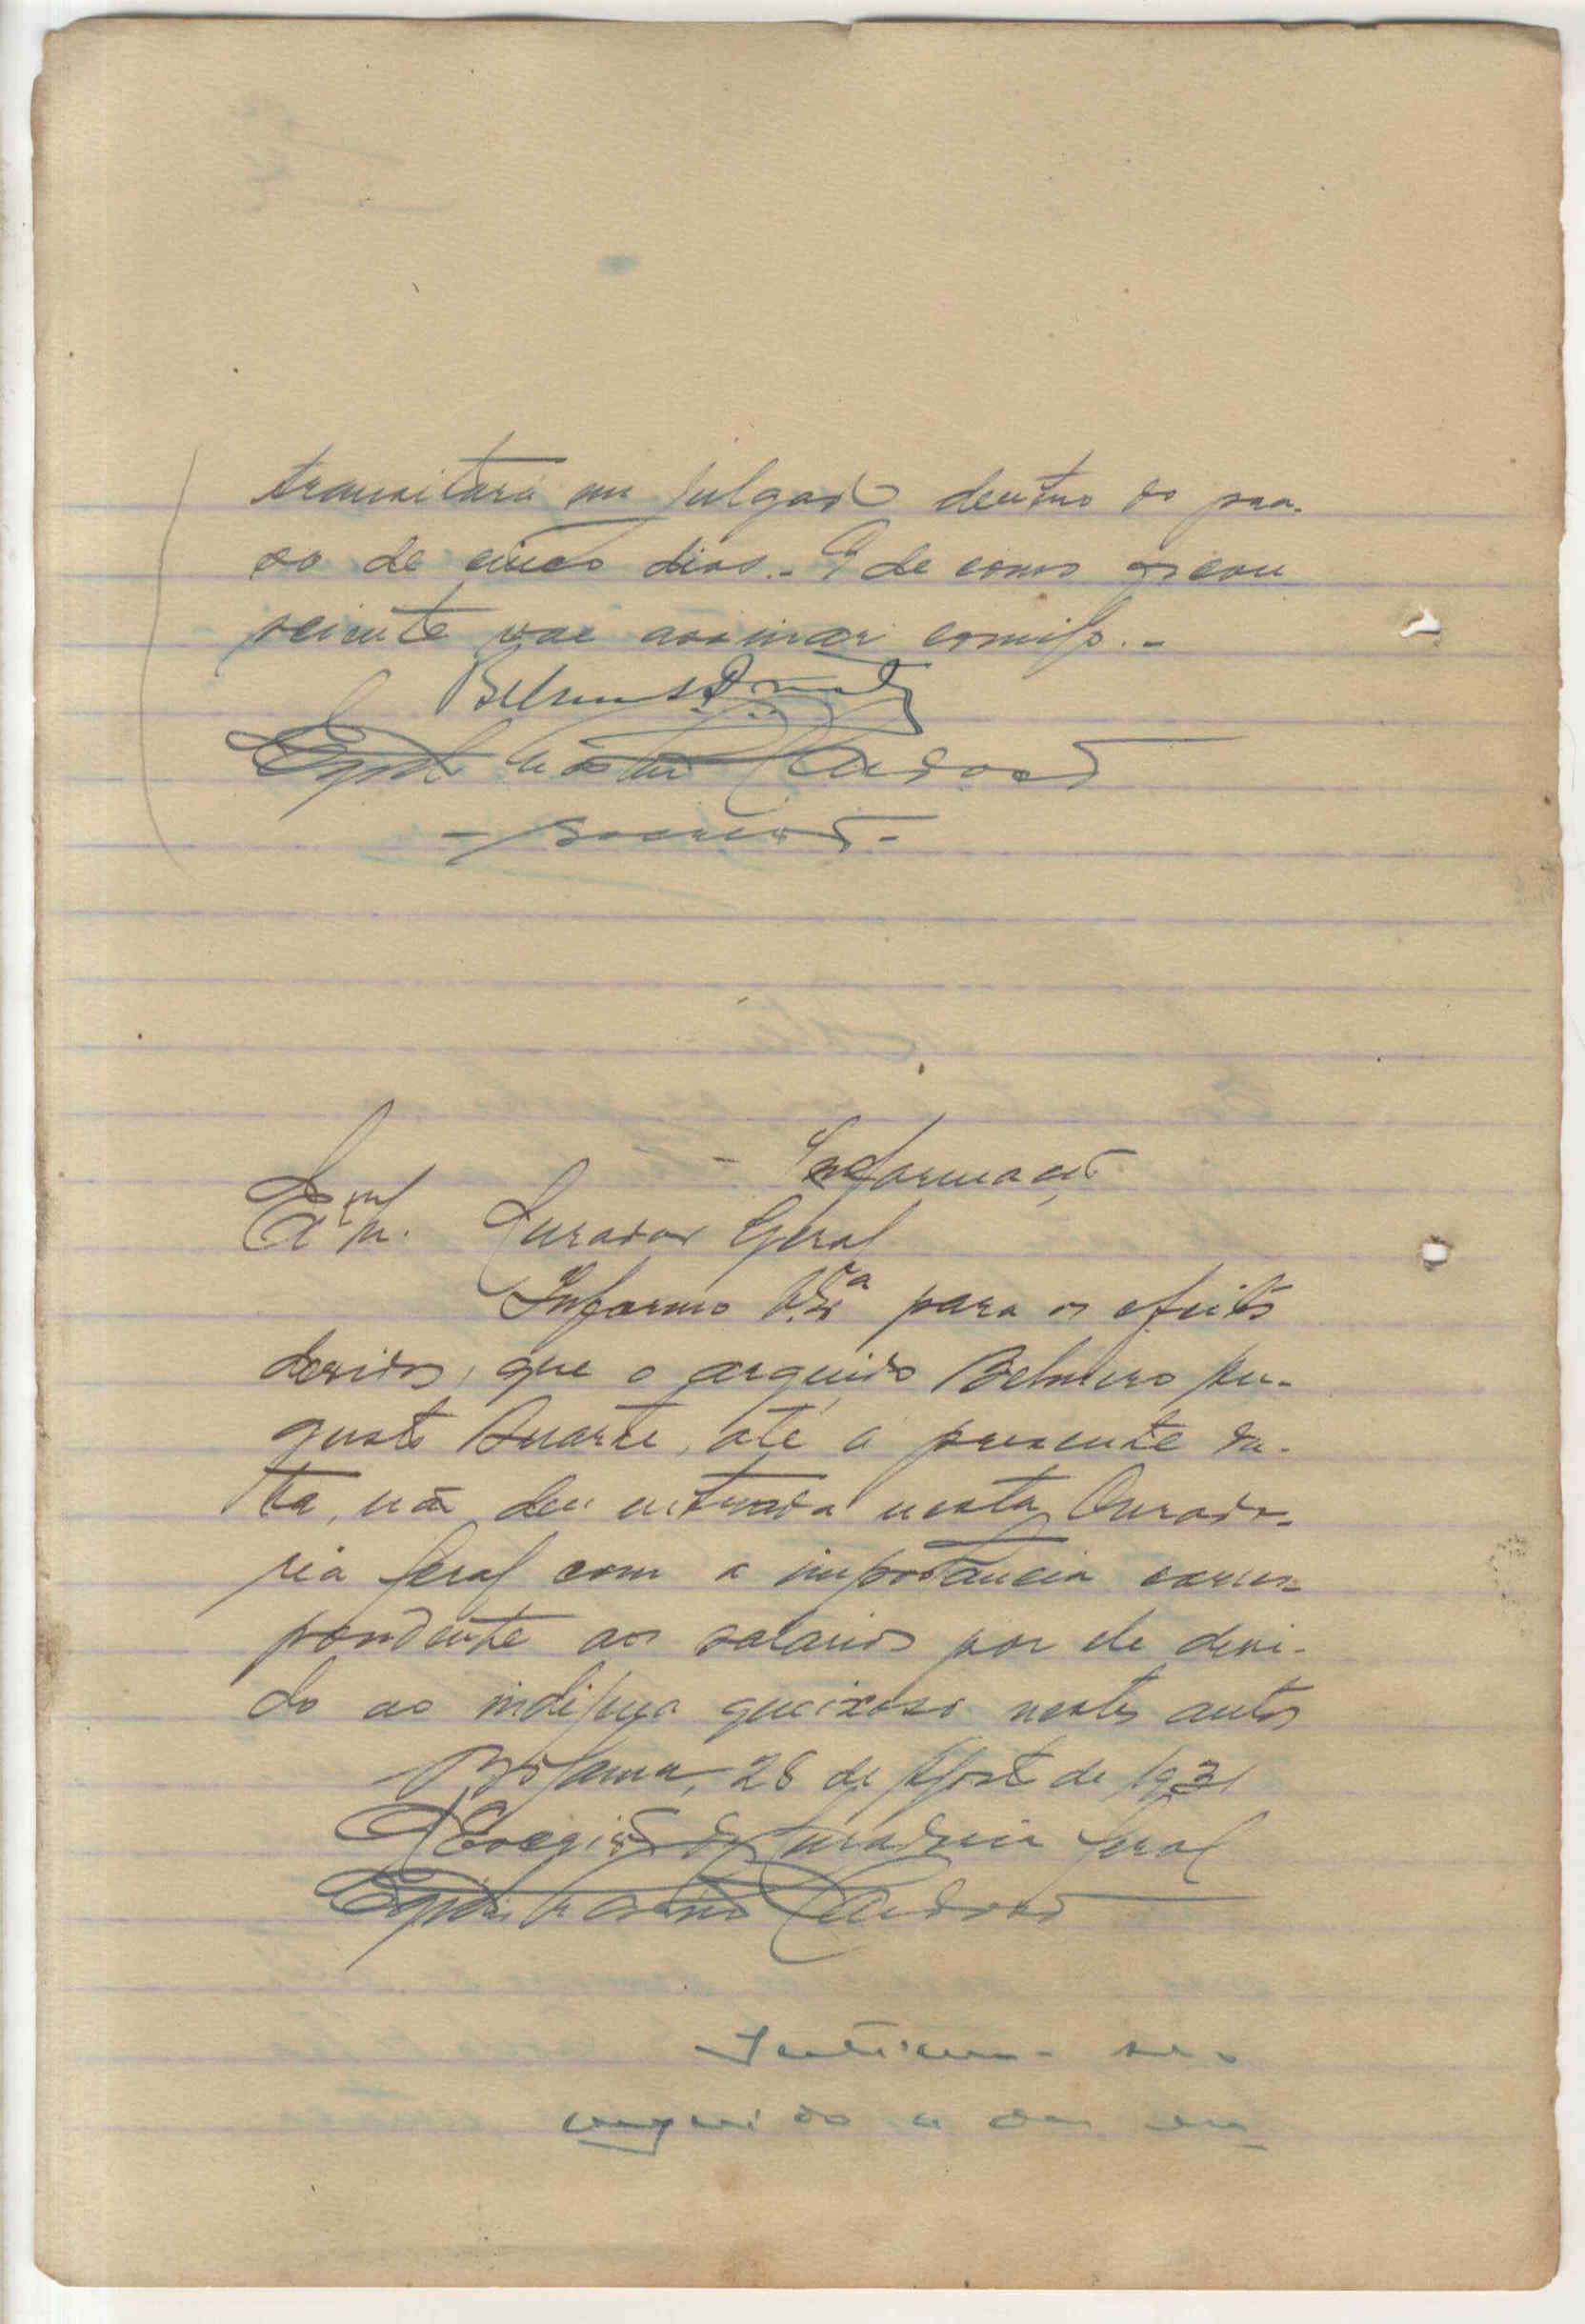 transitará em julgado dentro do pra-
so de cinco dias.- E de como ficou
sciente vae assinar comigo.-
Cardoso
- Informação
Exmº Snr. Curador Geral
Informo V. Exª para os efeitos
devidos, que o arguido Belmiro Au-
gusto Duarte, até á presente da-
ta, não deu entrada nesta Curado-
ria Geral com a importancia corres-
pondente aos salarios por ele devi-
do ao indigena queixoso nestes autos
Bolama, 28 de Agosto de 1931
O Escrivão da Curadoria Geral
Cardoso
se o
arguido a dar en